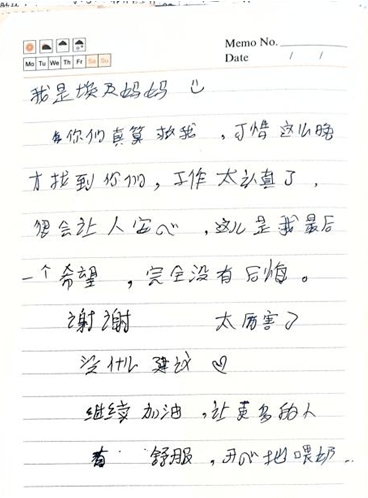 Memo No.
Date / /
Mo Tu We Th Fr Sa Su
我是埃及妈妈
你们真算救我，可惜这么晚
才找到你们，工作太认真了，
很会让人安心，这儿是我最后
一个希望，完全没有后悔。
谢谢 太厉害了
没什么建议
继续加油，让更多的人
有舒服，开心地喂奶..